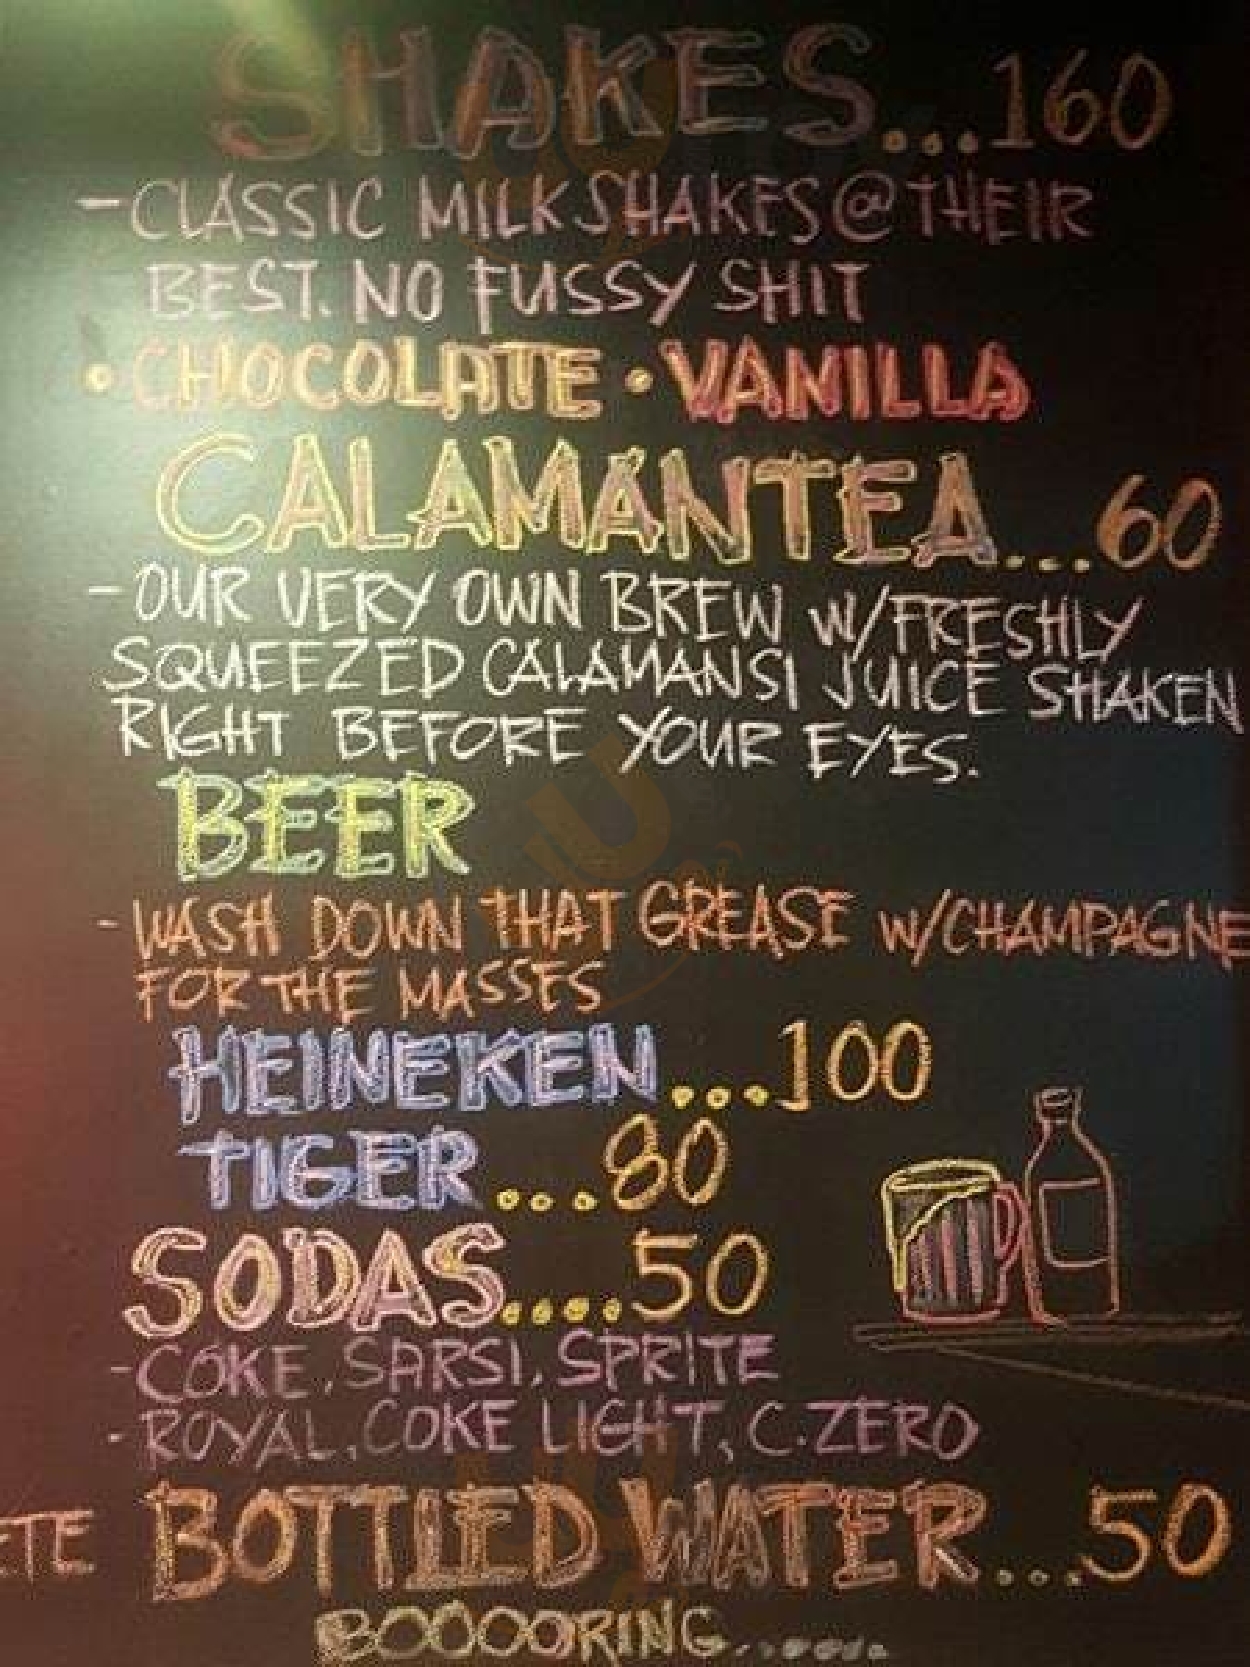 SHAKES...160
-CLASSIC MILKSHAKES @ THEIR
BEST. NO FUSSY SHIT
•CHOCOLATE •VANILLA
CALAMANTEA...60
-OUR VERY OWN BREW W/FRESHLY
SQUEEZED CALAMANSI JUICE SHAKEN
RIGHT BEFORE YOUR EYES.
BEER
-WASH DOWN THAT GREASE W/CHAMPAGNE
FOR THE MASSES
HEINEKEN...100
TIGER...80
SODAS....50
-COKE, SARSI, SPRITE
-ROYAL, COKE LIGHT, C.ZERO
ETE BOTTLED WATER...50
BOOOORING.......